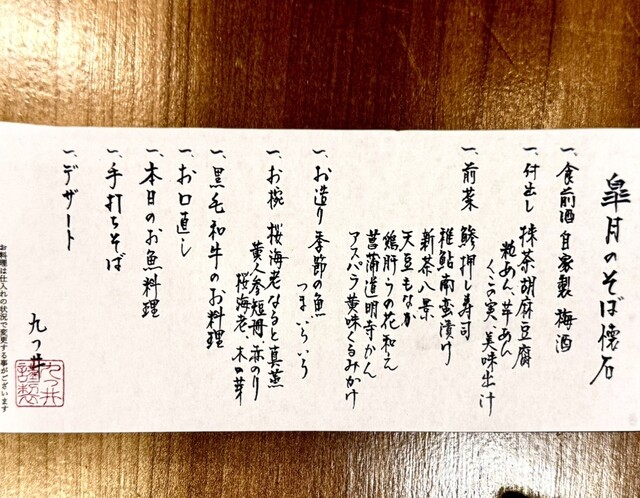 皐月のそば懐石
一、食前酒 自家製 梅酒
一、付出し 抹茶胡麻豆腐
糀あん、芋あん
くこの実、美味出汁
一、前菜 鯵押し寿司
稚鮎南蛮漬け
新茶八景
天豆もなか
鶏肝うの花和え
菖蒲道明寺かん
アスパラ黄味くるみかけ
一、お造り 季節の魚
つまいろいろ
一、お椀 桜海老なると真薯
黄人参短冊 赤のり
桜海老、木の芽
一、黒毛和牛のお料理
一、お口直し
一、本日のお魚料理
一、手打ちそば
一、デザート
九つ井
お料理は仕入れの状況で変更する事がございます